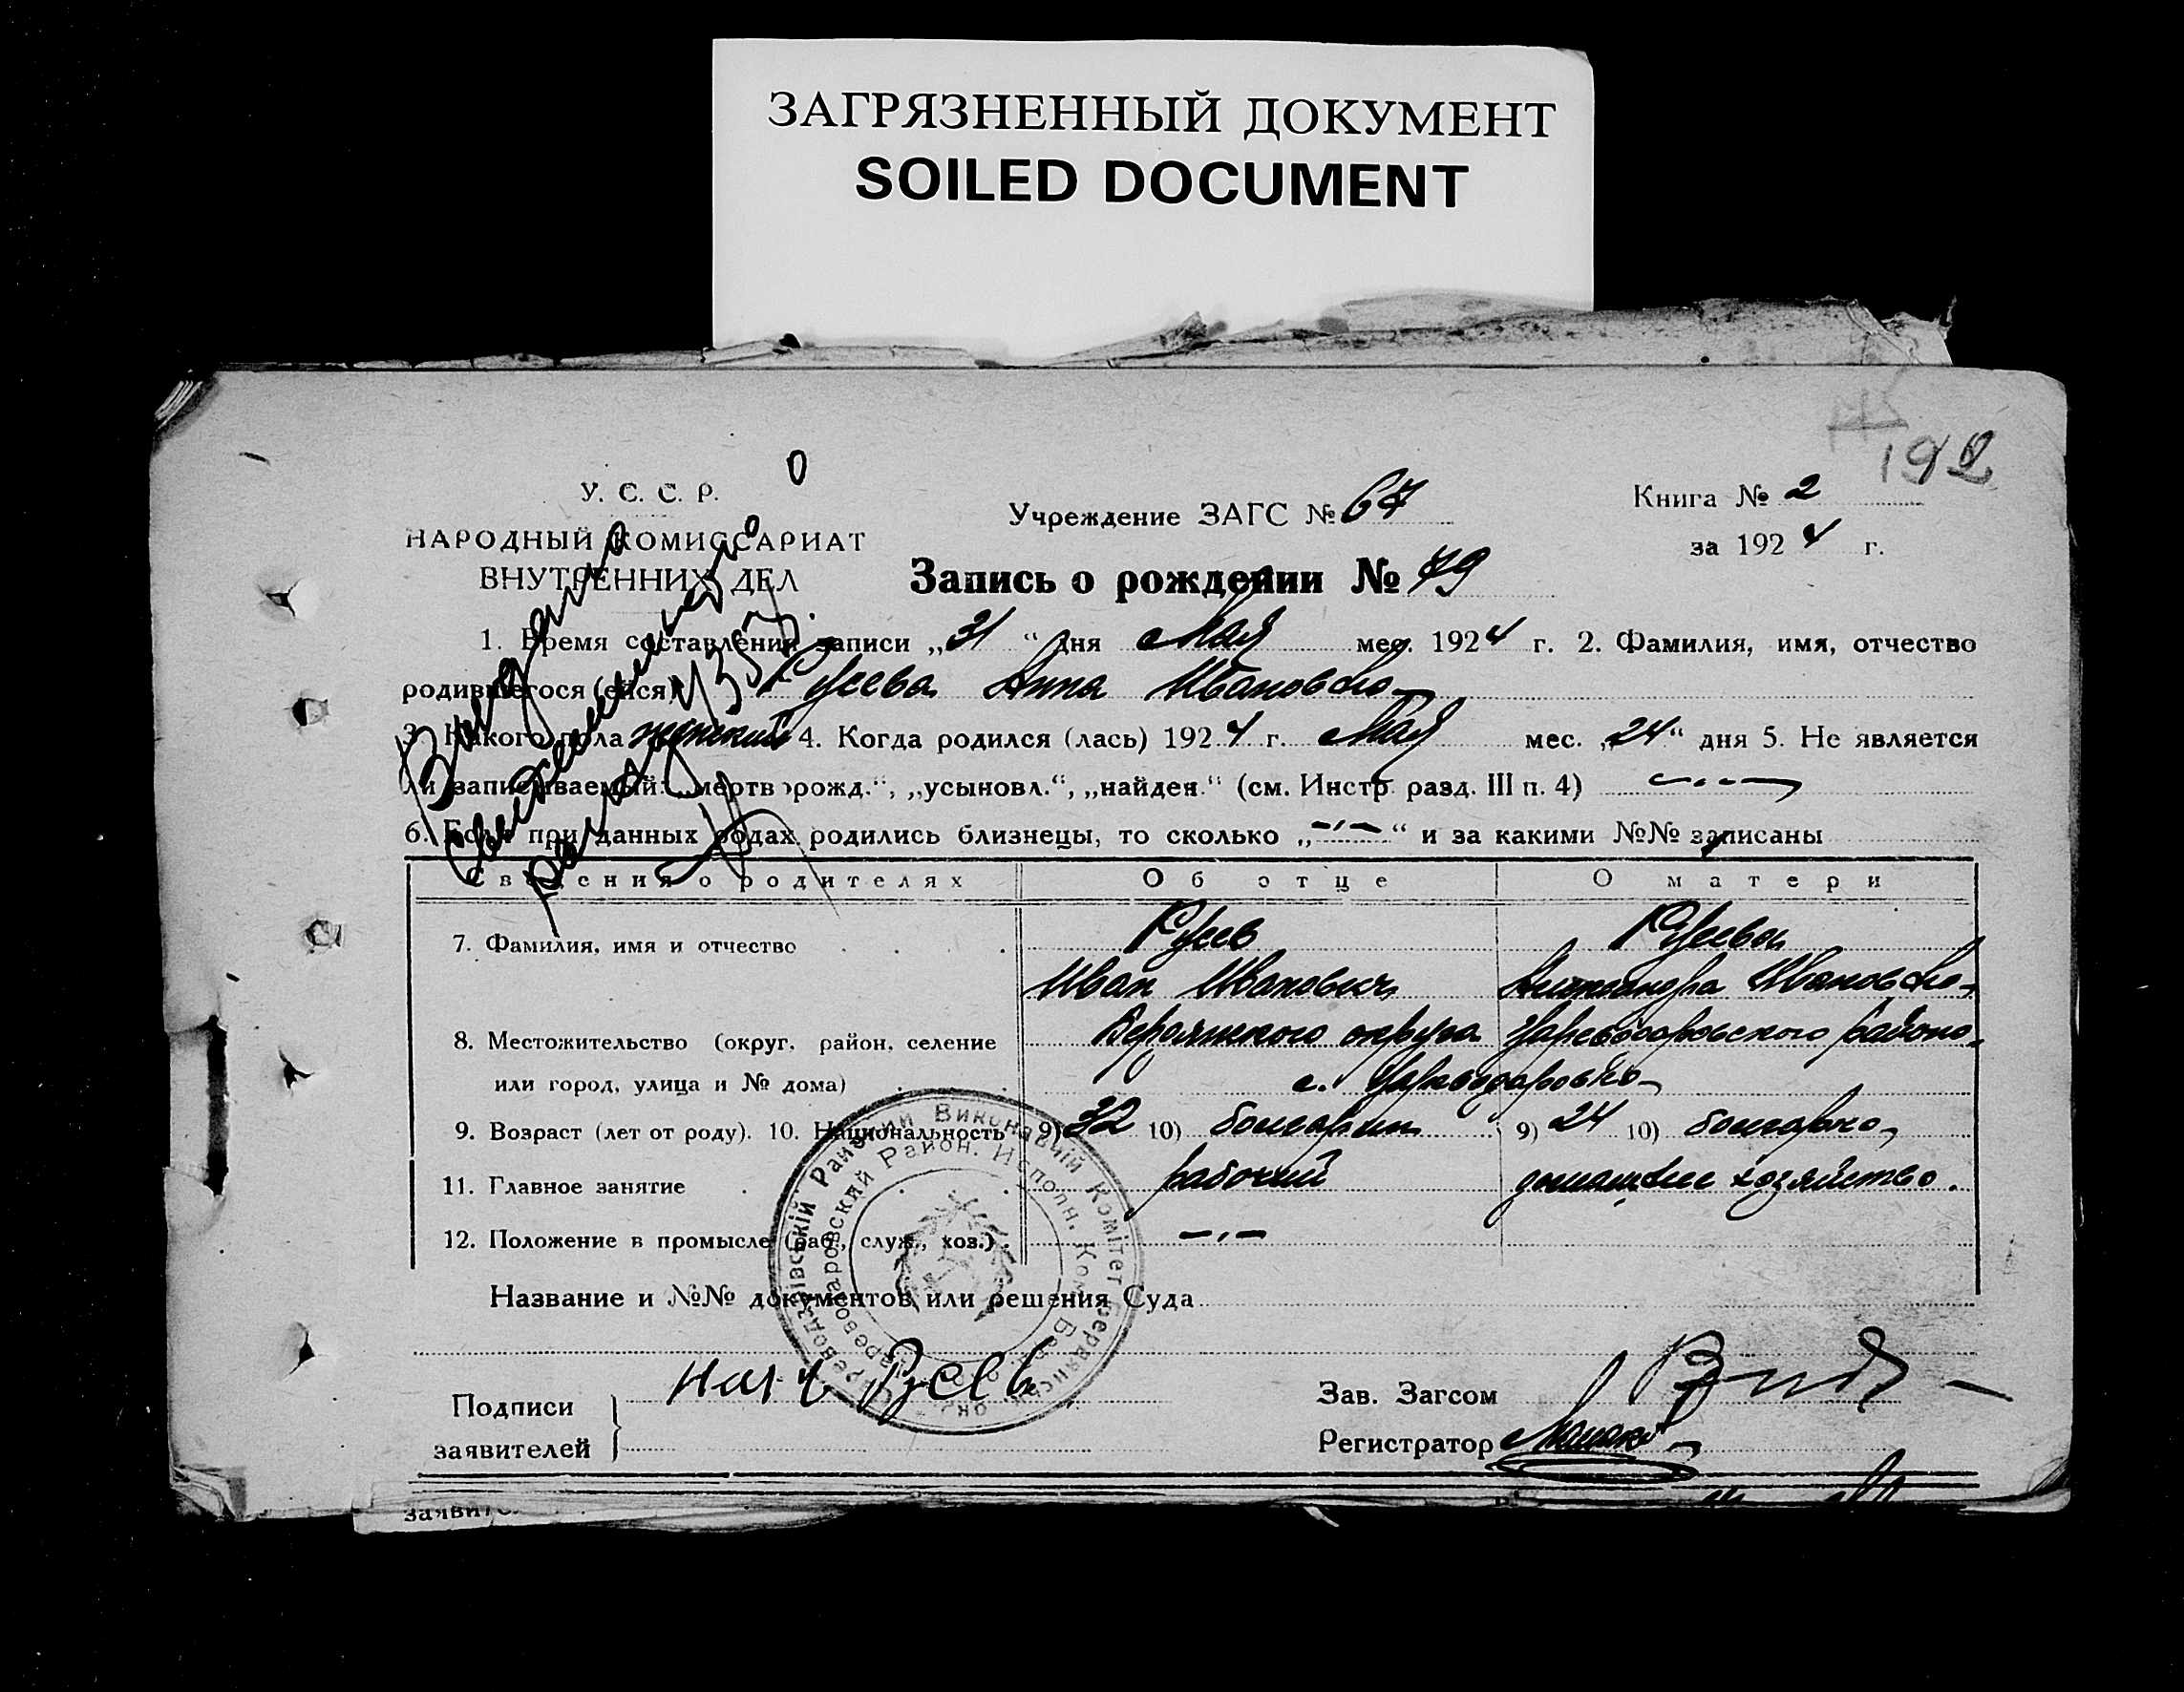 ЗАГРЯЗНЕННЫЙ ДОКУМЕНТ
SOILED DOCUMENT
192
У. С. С. Р.
НАРОДНЫЙ КОМИССАРИАТ
ВНУТРЕННИХ ДЕЛ
Учреждение ЗАГС № 67
Книга № 2
за 1924 г.
Запись о рождении № 79
1. Время составления записи „31“ дня Мая мес. 1924 г. 2. Фамилия, имя, отчество
родившегося (ейся) Русева Анна Ивановна
3. Какого пола женский 4. Когда родился (лась) 1924 г. Мая мес. „24“ дня 5. Не является
ли записываемый: „мертворожд.“, „усыновл.“, „найден.“ (см. Инстр. разд. III п. 4) —·—
6. Если при данных родах родились близнецы, то сколько „—·—“ и за какими №№ записаны
Сведения о родителях Об отце О матери
7. Фамилия, имя и отчество Русев Русева
Иван Иванович Ивановна
8. Местожительство (округ, район, селение Бердянского округа Цареводаровского района
или город, улица и № дома) с. Цареводаровка
9. Возраст (лет от роду). 10. Национальность 9) 32 10) болгарин 9) 24 10) болгарка
11. Главное занятие рабочий домашнее хозяйство.
12. Положение в промысле (раб., служ., хоз.) —·—
Название и №№ документов или решения Суда
Подписи
заявителей
Русев
Зав. Загсом
Регистратор
Районний Виконавчій Комітет
Цареводаровский Район. Исполн. Ком.